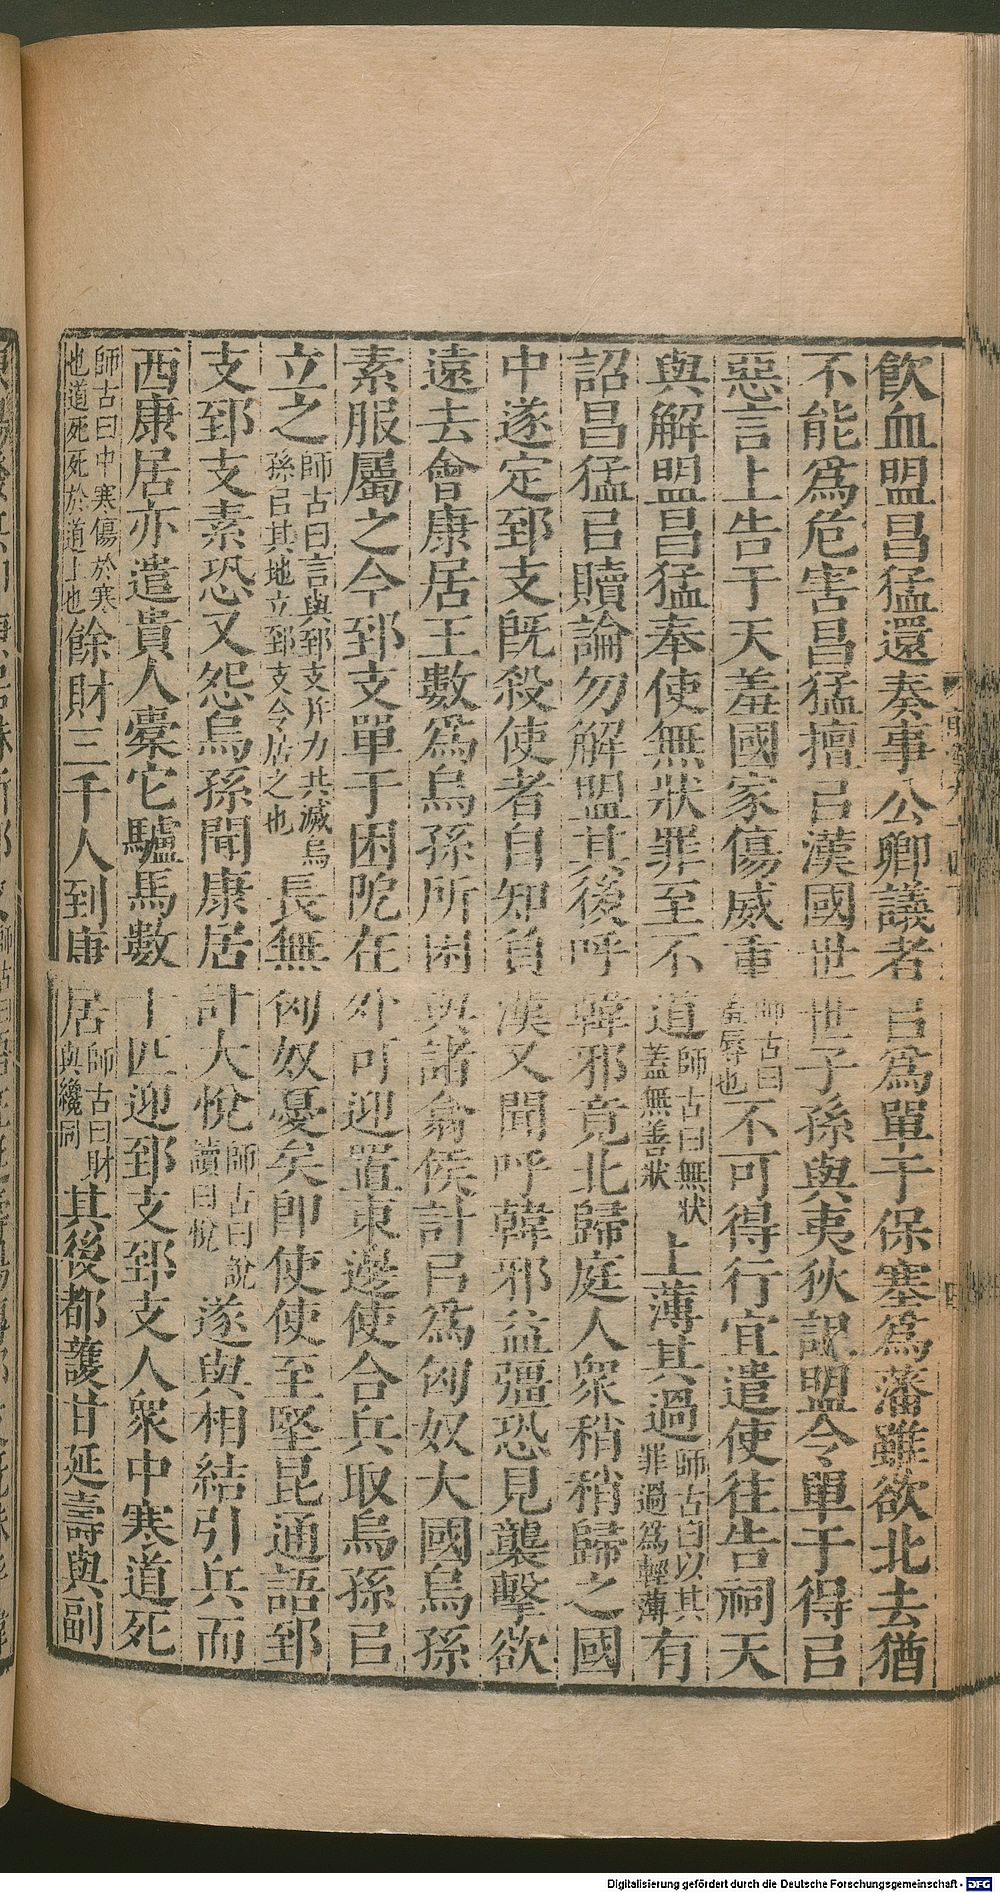 飲血盟昌猛還奏事公卿議者㠯爲單于保塞爲藩雖欲北去猶
不能爲危害昌猛擅㠯漢國世世子孫與夷狄詛盟令單于得㠯
惡言上告于天羞國家傷威重師古曰羞辱也不可得行宜遣使往告祠天
與解盟昌猛奉使無狀罪至不道師古曰無狀蓋無善狀上薄其過師古曰以其罪過爲輕薄有
詔昌猛㠯贖論勿解盟其後呼韓邪竟北歸庭人衆稍稍歸之國
中遂定郅支既殺使者自知負漢又聞呼韓邪益彊恐見襲擊欲
遠去會康居王數爲烏孫所困與諸翕侯計㠯爲匈奴大國烏孫
素服屬之今郅支單于困阸在外可迎置東邊使合兵取烏孫㠯
立之師古曰言與郅支并力共滅烏孫㠯其地立郅支令居之也長無匈奴憂矣卽使使至堅昆通語郅
支郅支素恐又怨烏孫聞康居計大悅師古曰說讀曰悅遂與相結引兵而
西康居亦遣貴人橐它驢馬數十匹迎郅支郅支人衆中寒道死
師古曰中寒傷於寒也道死死於道上也餘財三千人到康居師古曰財與纔同其後都護甘延壽與副
Digitalisierung gefördert durch die Deutsche Forschungsgemeinschaft - DFG